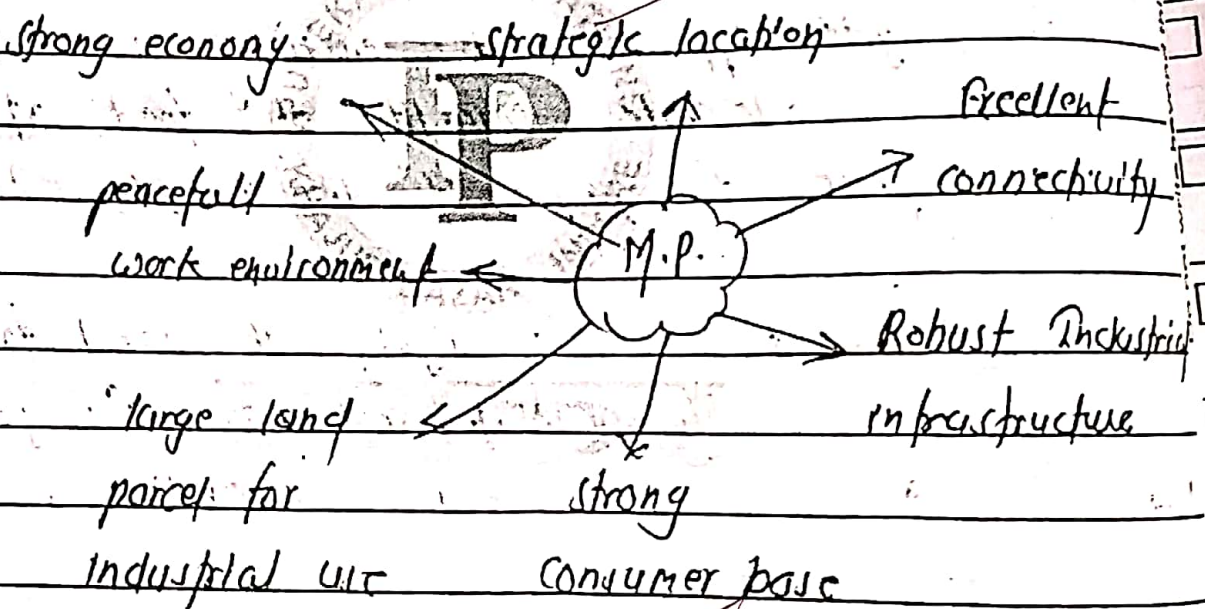 strong economy strategic location
Excellent
connectivity
peacefull
work environment
M.P.
Robust Industrial
infrastructure
large land
parcel for
industrial use
strong
consumer base
P